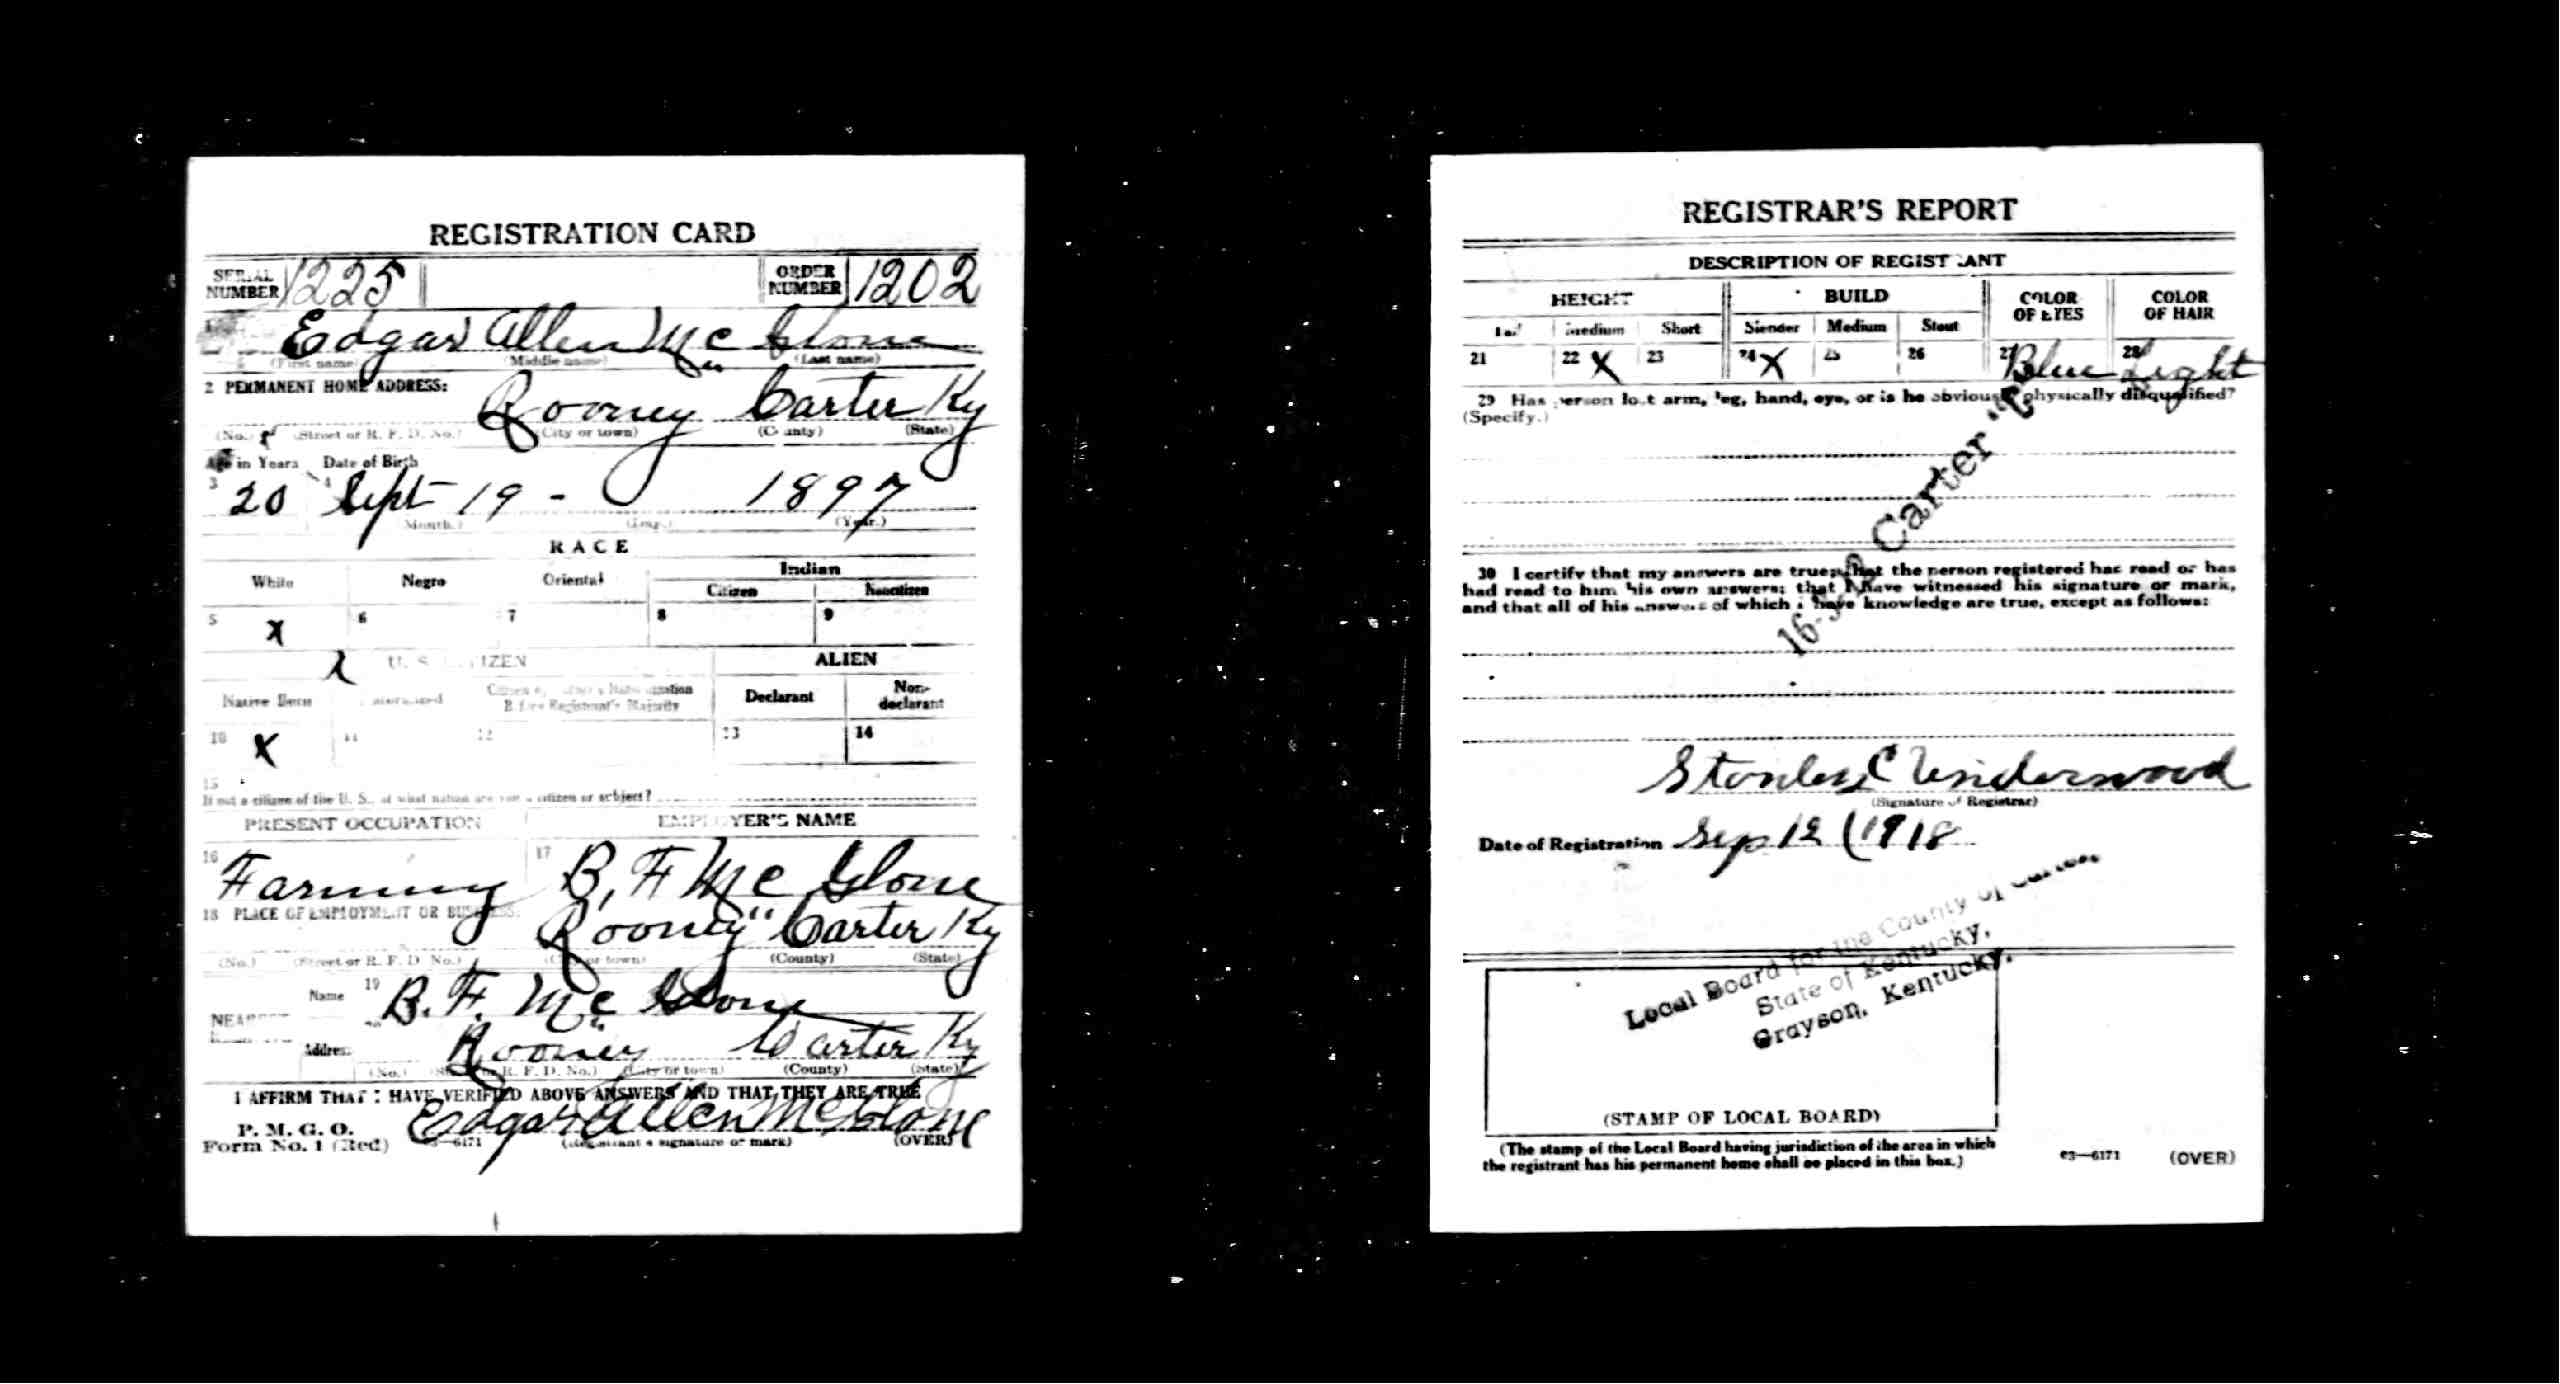 REGISTRATION CARD
SERIAL NUMBER 1225 ORDER NUMBER 1202
Edgar Allen Mc Glone
(First name) (Middle name) (Last name)
2 PERMANENT HOME ADDRESS:
Rooney Carter Ky
(No.) (Street or R. F. D. No.) (City or town) (County) (State)
Age in Years Date of Birth
3 20 4 Sept 19 - 1897
(Month.) (Day.) (Year.)
RACE
White Negro Oriental Indian
Citizen Noncitizen
5 X 6 7 8 9
X U. S. CITIZEN ALIEN
Native Born Naturalized Citizen by Father's Naturalization Before Registrant's Majority Declarant Non-declarant
10 X 11 12 13 14
15
If not a citizen of the U. S., of what nation are you a citizen or subject?
PRESENT OCCUPATION EMPLOYER'S NAME
16 Farming 17 B. F. Mc Glone
18 PLACE OF EMPLOYMENT OR BUSINESS:
Rooney " Carter Ky
(No.) (Street or R. F. D. No.) (City or town) (County) (State)
Name 19 B. F. Mc Glone
NEAREST
Address Rooney Carter Ky
(No.) (Street or R. F. D. No.) (City or town) (County) (State)
I AFFIRM THAT I HAVE VERIFIED ABOVE ANSWERS AND THAT THEY ARE TRUE
P. M. G. O.
Form No. 1 (Red) Edgar Allen McGlone
03—6171 (Registrant's signature or mark) (OVER)
REGISTRAR'S REPORT
DESCRIPTION OF REGISTRANT
HEIGHT BUILD COLOR OF EYES COLOR OF HAIR
Tall Medium Short Slender Medium Stout
21 22 X 23 24 X 25 26 27 Blue 28 Light
29 Has person lost arm, leg, hand, eye, or is he obviously physically disqualified?
(Specify.)
Carter
30 I certify that my answers are true; that the person registered has read or has
had read to him his own answers; that I have witnessed his signature or mark,
and that all of his answers of which I have knowledge are true, except as follows:
Stanley C Underwood
(Signature of Registrar)
Date of Registration Sep 12 (1918
Local Board for the County of Carter,
State of Kentucky,
Grayson, Kentucky.
(STAMP OF LOCAL BOARD)
(The stamp of the Local Board having jurisdiction of the area in which
the registrant has his permanent home shall be placed in this box.)
03—6171 (OVER)